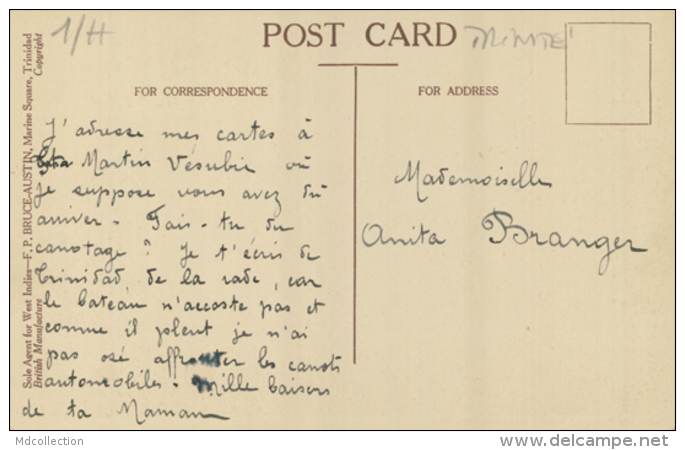 1/H
POST CARD
FOR CORRESPONDENCE
FOR ADDRESS
Sole Agent for West Indies—F. P. BRUCE-AUSTIN, Marine Square, Trinidad
British Manufacture
Copyright
J'adresse mes cartes à
St Martin Vésubie où
je suppose vous avez dû
arriver - Fais-tu du
canotage ? Je t'écris de
Trinidad, de la rade, car
le bateau n'accoste pas et
comme il pleut je n'ai
pas osé affronter les canots
automobiles - Mille baisers
de ta Maman
Mademoiselle
Anita Branger
Mdcollection
delcampe.net